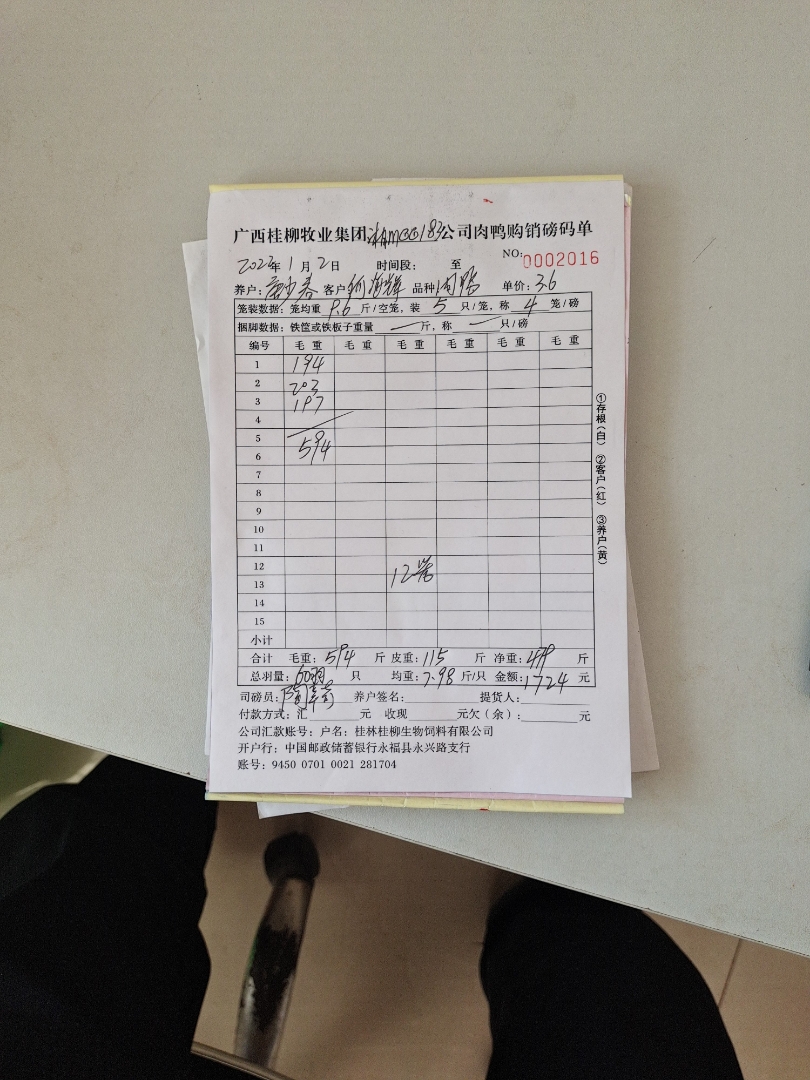 广西桂柳牧业集团 公司肉鸭购销磅码单
NO: 0002016
2022年1月2日 时间段: 至
养户: 客户 何海辉 品种 肉鸭 单价: 3.6
笼装数据: 笼均重 9.6 斤/空笼, 装 5 只/笼, 称 4 笼/磅
捆脚数据: 铁筐或铁板子重量 — 斤, 称 — 只/磅
编号 毛重 毛重 毛重 毛重 毛重 毛重
1 194
2 203
3 197
4
5
6 594
7
8
9
10
11
12
13 12笼
14
15
小计
合计 毛重: 594 斤 皮重: 115 斤 净重: 479 斤
总羽量: 60羽 只 均重: 7.98 斤/只 金额: 1724 元
司磅员: 养户签名: 提货人:
付款方式: 汇 元 收现 元欠(余): 元
公司汇款账号: 户名: 桂林桂柳生物饲料有限公司
开户行: 中国邮政储蓄银行永福县永兴路支行
账号: 9450 0701 0021 281704
①存根(白) ②客户(红) ③养户(黄)